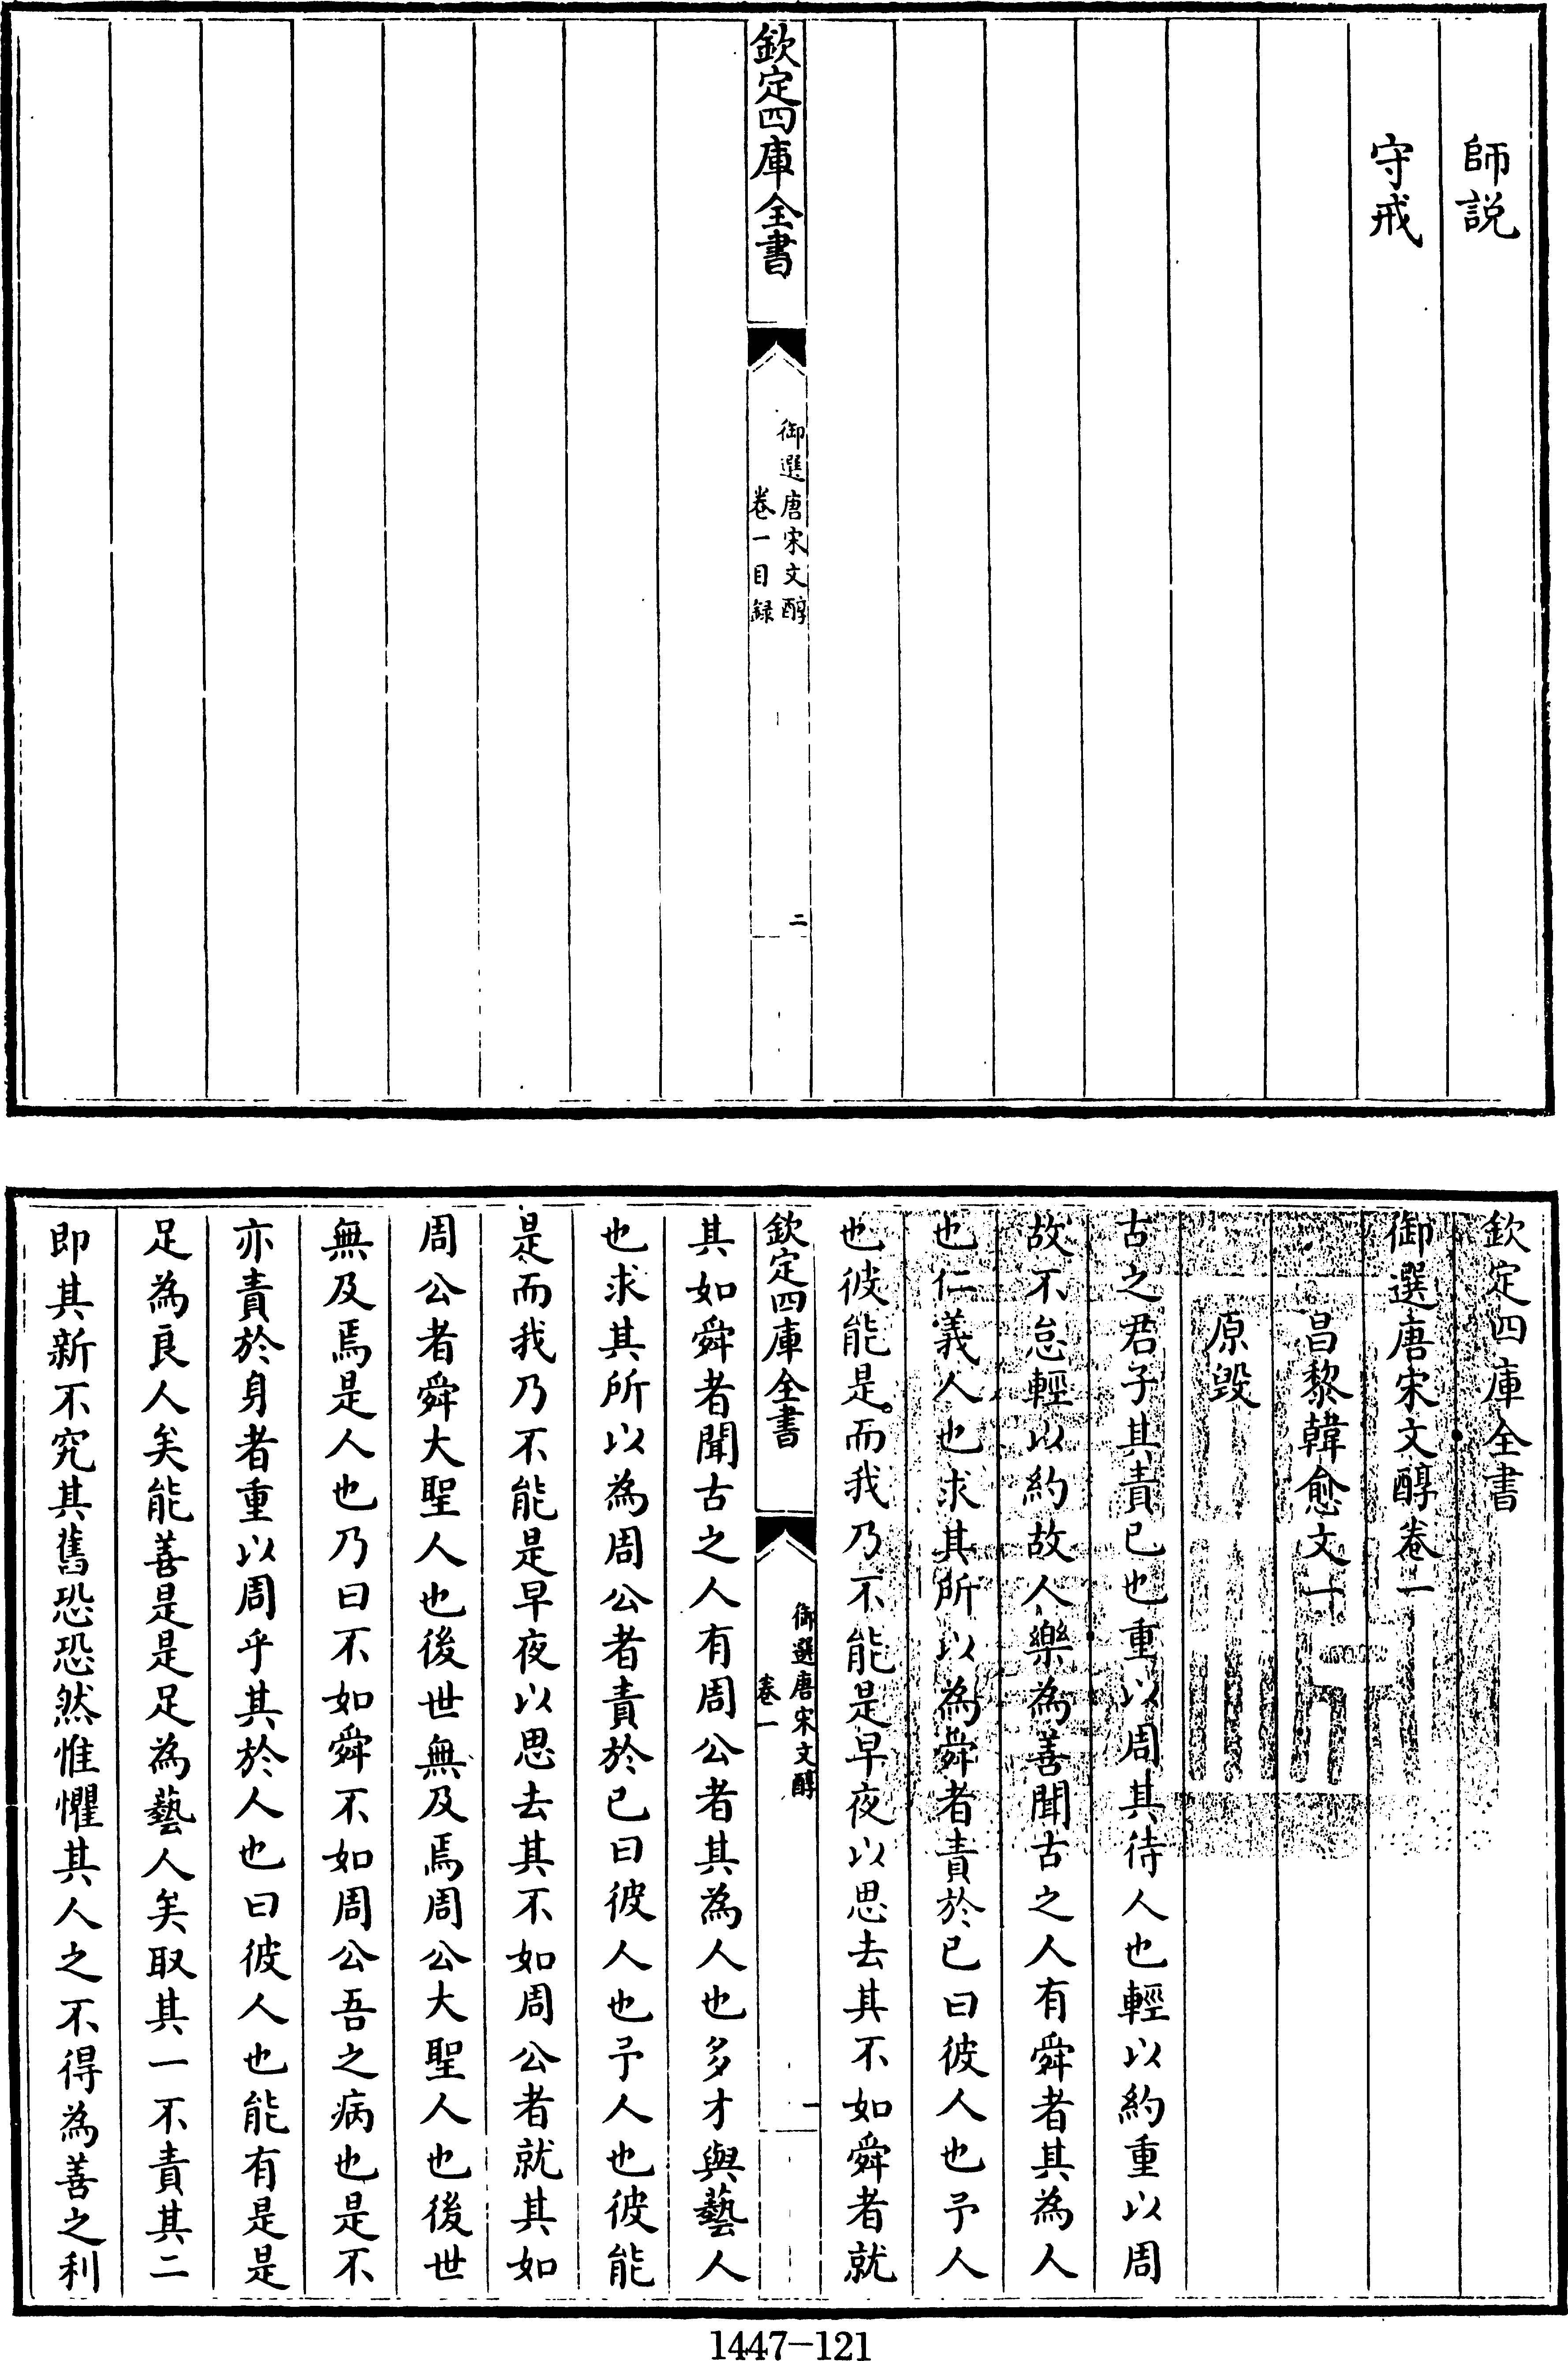 師説
守戒
欽定四庫全書
御選唐宋文醇
卷一目録
二
欽定四庫全書
御選唐宋文醇卷一
昌黎韓愈文一
原毀
古之君子其責已也重以周其待人也輕以約重以周
故不怠輕以約故人樂為善聞古之人有舜者其為人
也仁義人也求其所以為舜者責於已曰彼人也予人
也彼能是而我乃不能是早夜以思去其不如舜者就
欽定四庫全書
御選唐宋文醇
卷一
一
其如舜者聞古之人有周公者其為人也多才與藝人
也求其所以為周公者責於已曰彼人也予人也彼能
是而我乃不能是早夜以思去其不如周公者就其如
周公者舜大聖人也後世無及焉周公大聖人也後世
無及焉是人也乃曰不如舜不如周公吾之病也是不
亦責於身者重以周乎其於人也曰彼人也能有是是
足為良人矣能善是是足為藝人矣取其一不責其二
即其新不究其舊恐恐然惟懼其人之不得為善之利
1447-121